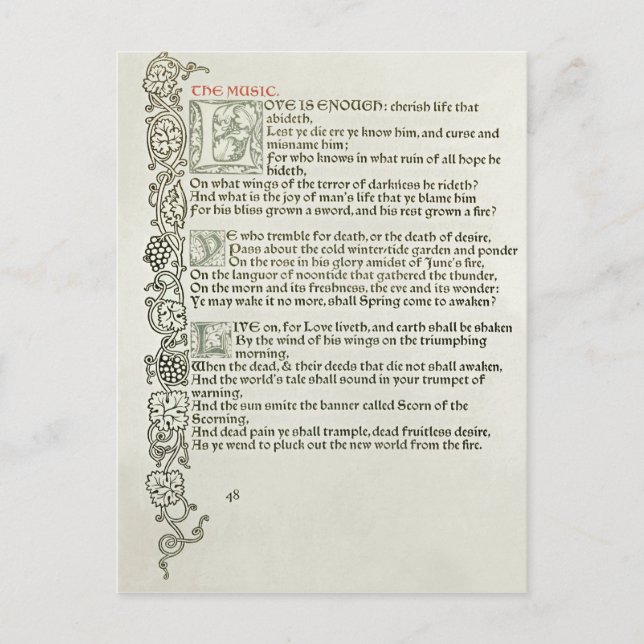 THE MUSIC.
LOVE IS ENOUGH: cherish life that
abideth,
Lest ye die ere ye know him, and curse and
misname him;
For who knows in what ruin of all hope he
hideth,
On what wings of the terror of darkness he rideth?
And what is the joy of man's life that ye blame him
For his bliss grown a sword, and his rest grown a fire?
YE who tremble for death, or the death of desire,
Pass about the cold winter-tide garden and ponder
On the rose in his glory amidst of June's fire,
On the languor of noontide that gathered the thunder,
On the morn and its freshness, the eve and its wonder:
Ye may wake it no more, shall Spring come to awaken?
LIVE on, for Love liveth, and earth shall be shaken
By the wind of his wings on the triumphing
morning,
When the dead, & their deeds that die not shall awaken,
And the world's tale shall sound in your trumpet of
warning,
And the sun smite the banner called Scorn of the
Scorning,
And dead pain ye shall trample, dead fruitless desire,
As ye wend to pluck out the new world from the fire.
48